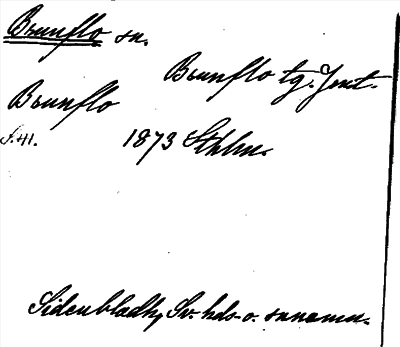 Brunflo sn.
Brunflo tg. Jmt.
Brunflo
S. 41. 1873 Sthlm.
Sidenbladh, Sv. hds- o. snnamn.